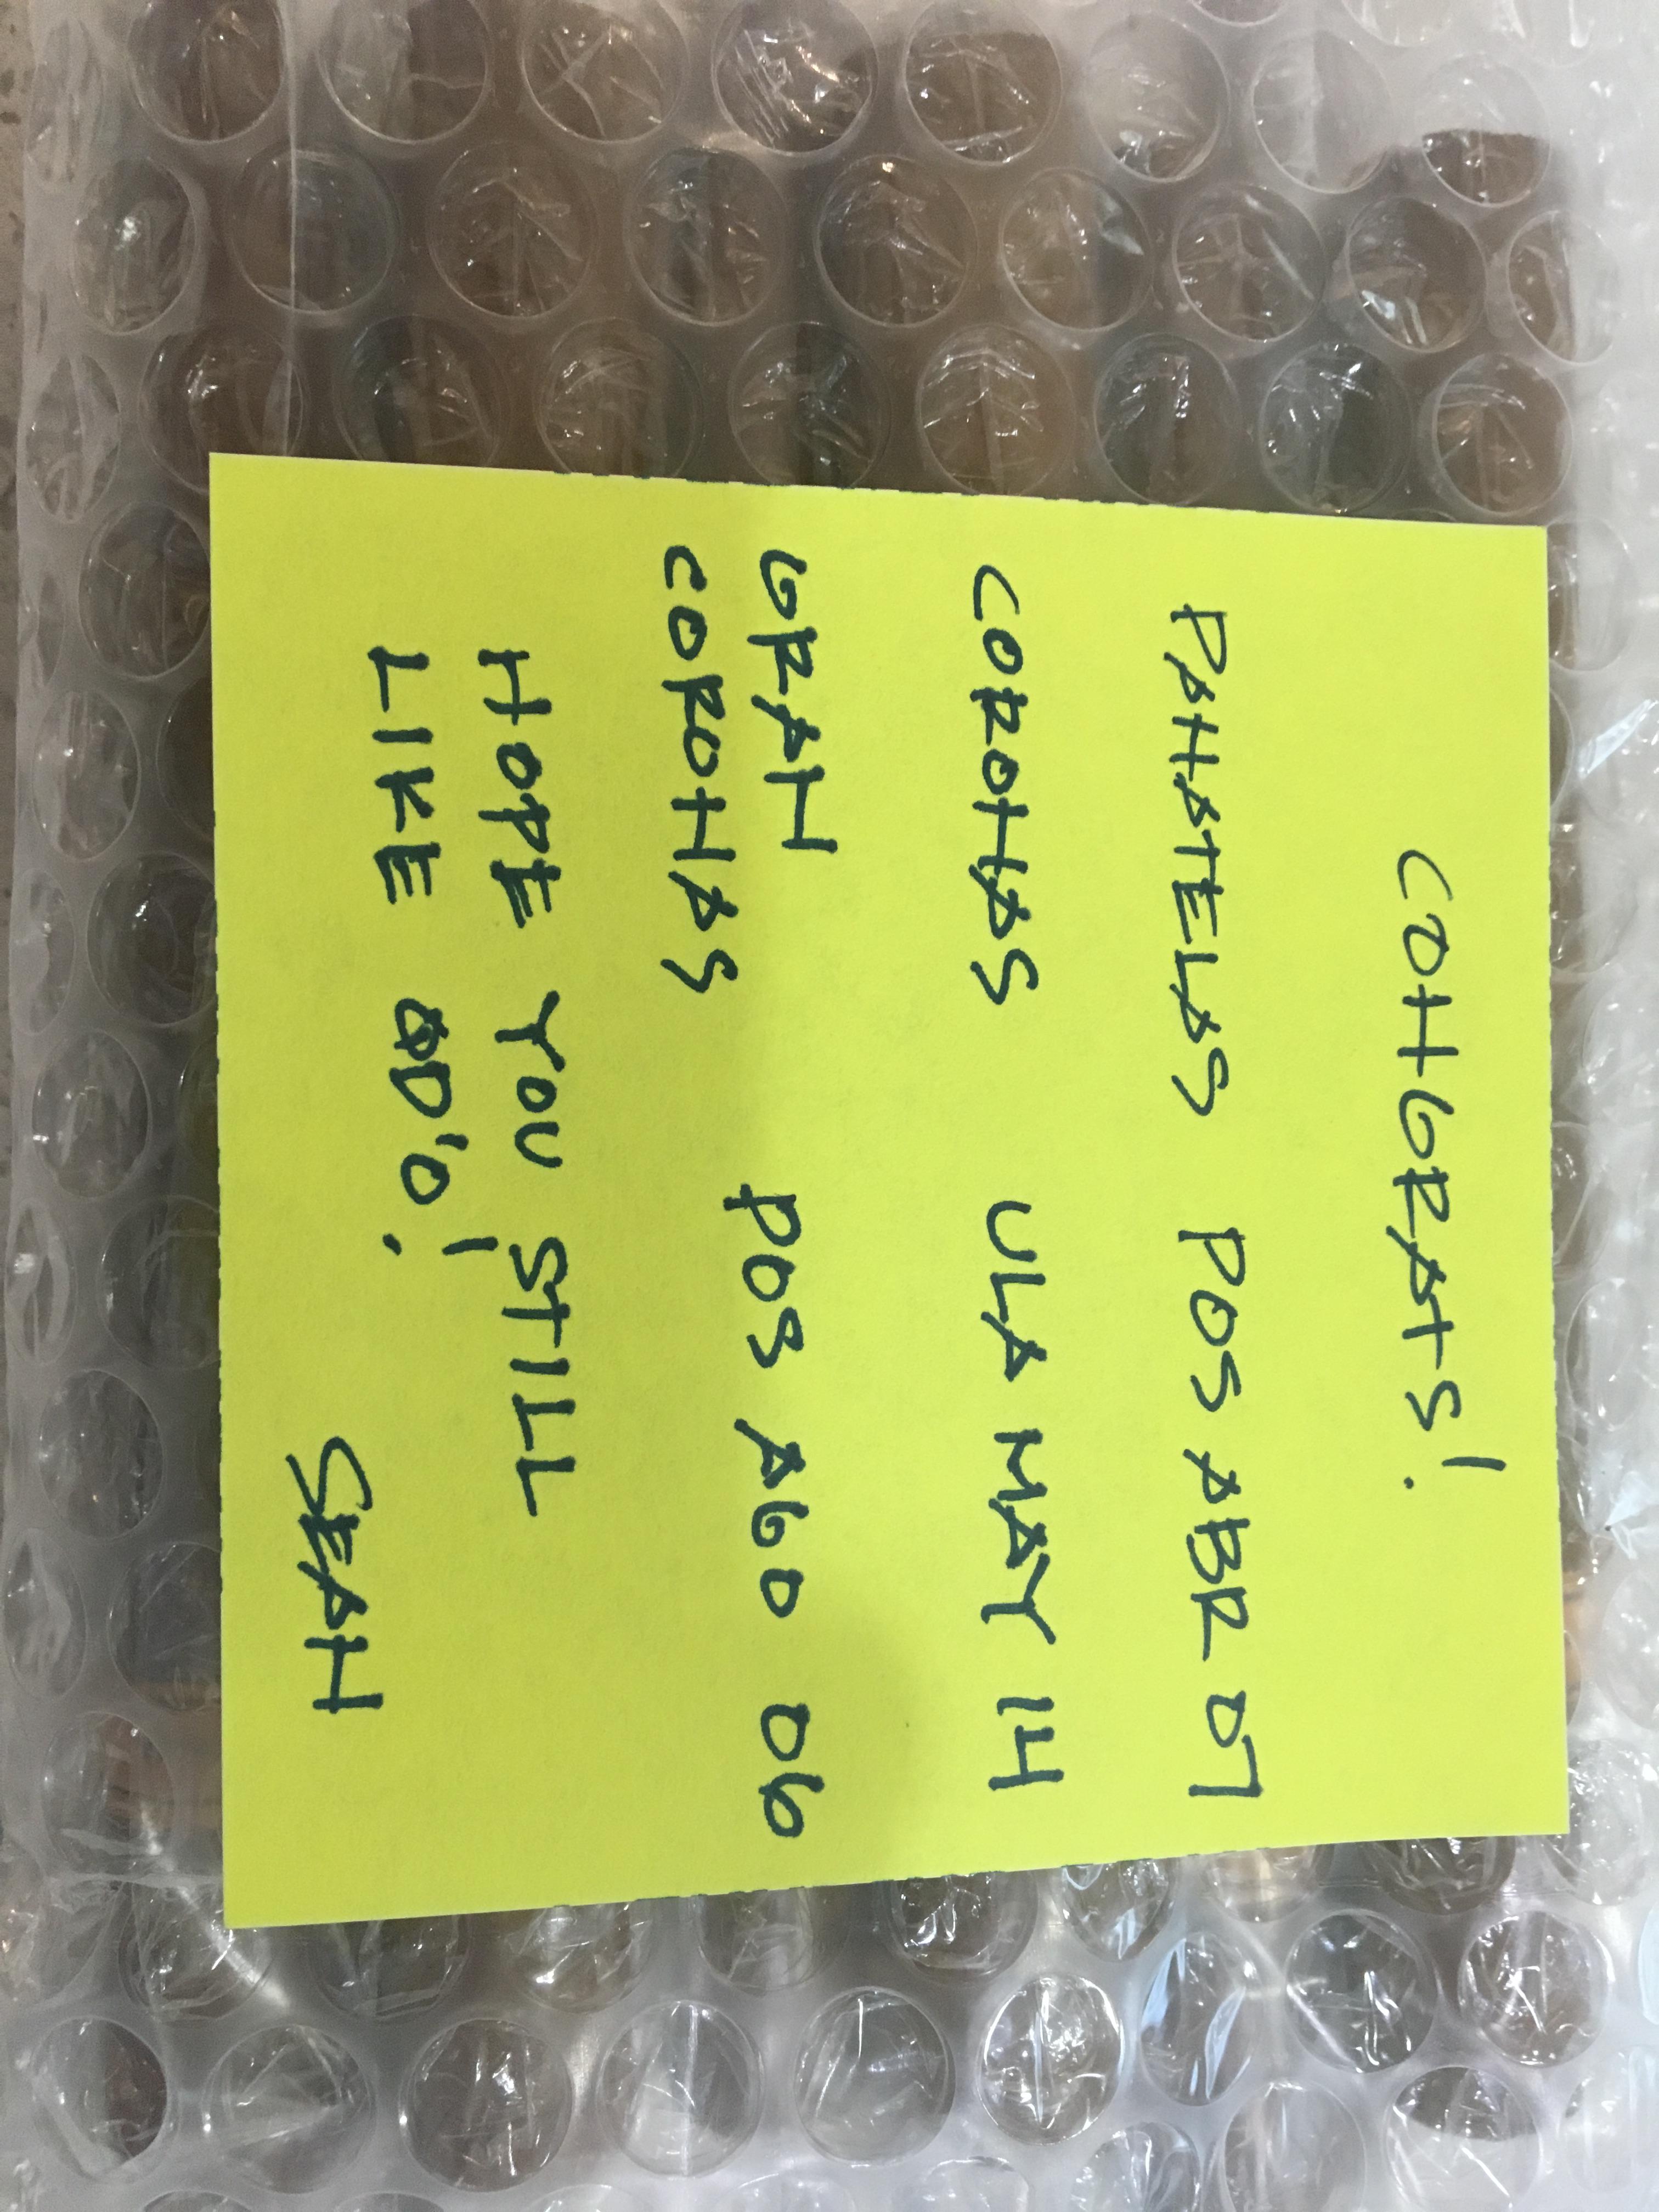 CONGRATS!
PANATELAS POS ABR 07
CORONAS ULA MAY 14
GRAN
CORONAS POS AGO 06
HOPE YOU STILL
LIKE QD'O!
SEAN